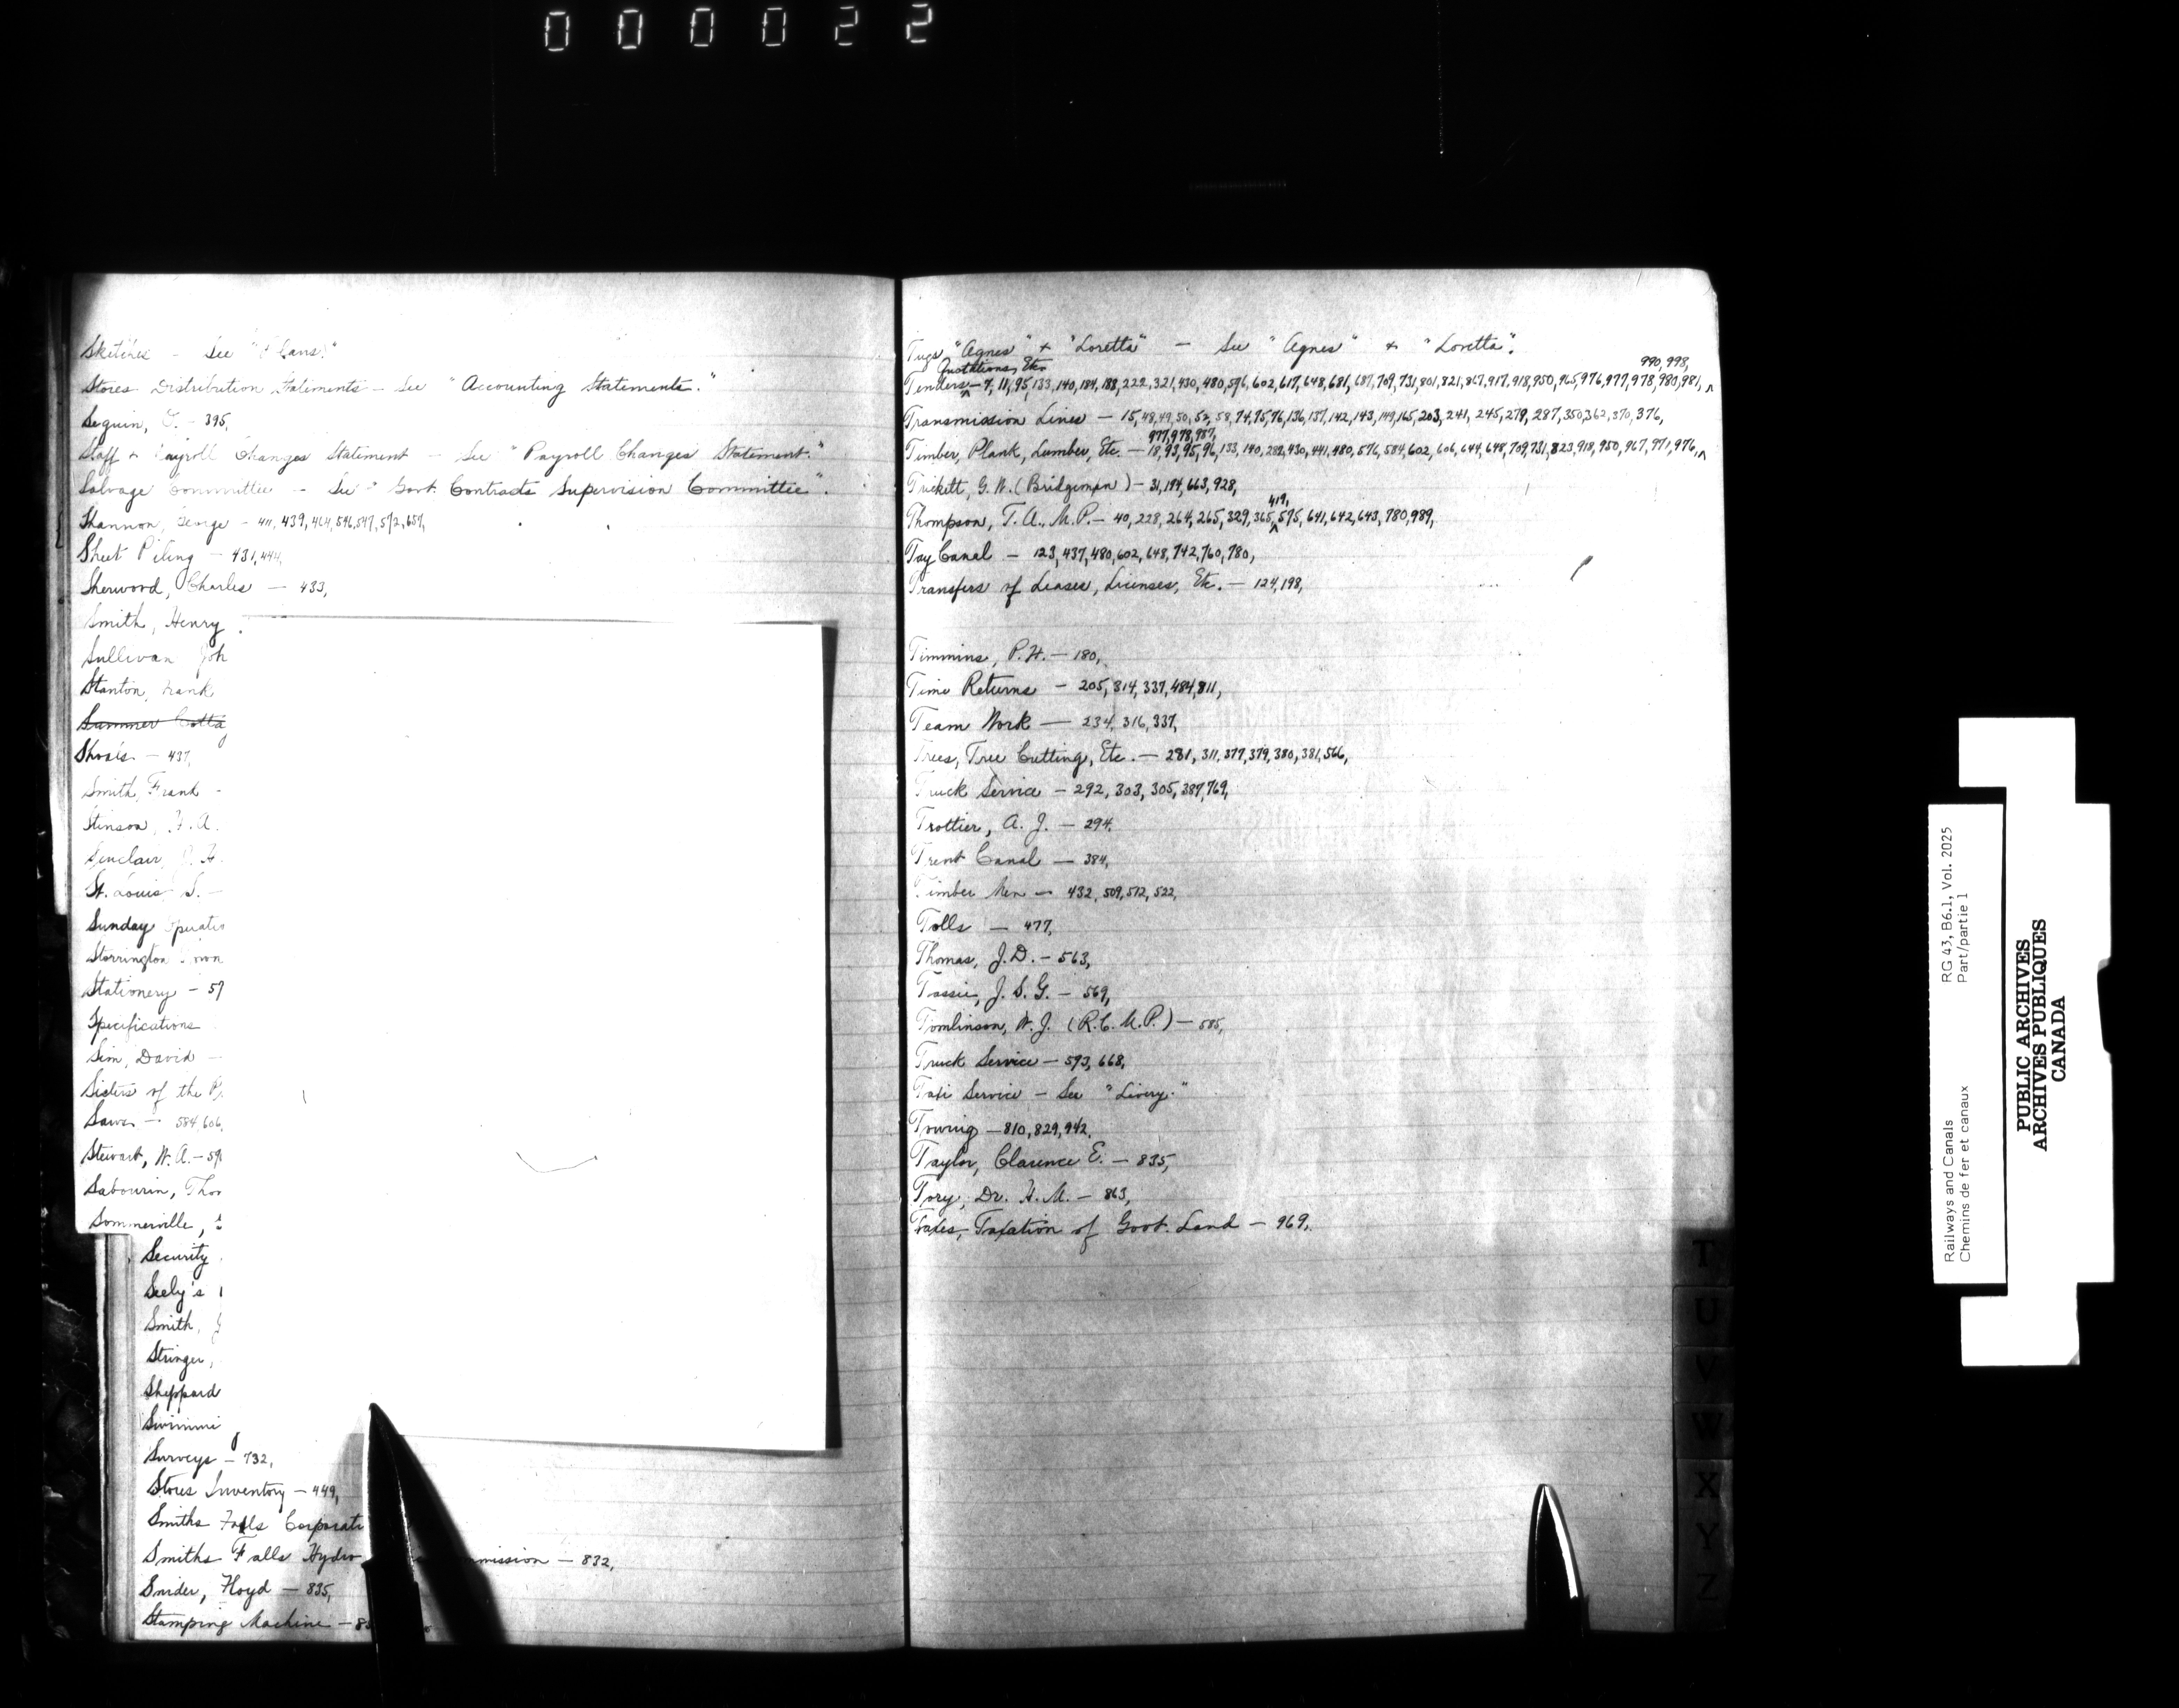 000022
Sketches - See "Plans"
Stores Distribution Statements - See "Accounting Statements."
Seguin, O. - 395,
Staff & Payroll Changes Statement - See "Payroll Changes Statement."
Salvage Committee - See "Govt. Contracts Supervision Committee".
Shannon, George - 411, 439, 464, 546, 547, 572, 657,
Sheet Piling - 431, 444,
Sherwood, Charles - 433,
Smith, Henry
Sullivan Joh
Stanton, Frank
Summer Cotta
Shoals - 437,
Smith, Frank -
Stinson, F. A.
Sinclair, J. H.
St. Louis S. -
Sunday Operatio
Storrington Town
Stationery - 57
Specifications
Sim, David -
Sisters of the P
Saws - 584, 606,
Stewart, W. A. - 59
Sabourin, Thos
Sommerville,
Security
Seely's
Smith, J
Stringer,
Sheppard
Swimmi
Surveys - 732,
Stores Inventory - 449,
Smiths Falls Corporati
Smiths Falls Hydro mmission - 832,
Snider, Floyd - 835,
Stamping Machine - 8
Tugs "Agnes" & "Loretta" - See "Agnes" & "Loretta".
Quotations, Etc. 990, 998,
Tenders - 7, 11, 95, 133, 140, 184, 188, 222, 321, 430, 480, 576, 602, 617, 648, 681, 687, 709, 731, 801, 821, 867, 917, 918, 950, 965, 976, 977, 978, 980, 981,
Transmission Lines - 15, 48, 49, 50, 52, 58, 74, 75, 76, 136, 137, 142, 143, 149, 165, 203, 241, 245, 279, 287, 350, 362, 370, 376,
977, 978, 987,
Timber, Plank, Lumber, Etc. - 18, 93, 95, 96, 133, 140, 282, 430, 441, 480, 576, 584, 602, 606, 644, 648, 709, 731, 823, 918, 950, 967, 971, 976,
Trickett, G. W. (Bridgeman) - 31, 194, 663, 928,
419,
Thompson, T. A., M.P. - 40, 228, 264, 265, 329, 365, 575, 641, 642, 643, 780, 989,
Tay Canal - 123, 437, 480, 602, 648, 742, 760, 780,
Transfers of Leases, Licenses, Etc. - 124, 198,
Timmins, P. H. - 180,
Time Returns - 205, 314, 337, 484, 811,
Team Work - 234, 316, 337,
Trees, Tree Cutting, Etc. - 281, 311, 377, 379, 380, 381, 566,
Truck Service - 292, 303, 305, 387, 769,
Trottier, A. J. - 294,
Trent Canal - 384,
Timber Men - 432, 509, 512, 522,
Tolls - 477,
Thomas, J. D. - 563,
Tassie, J. S. G. - 569,
Tomlinson, W. J. (R.C.M.P.) - 585,
Truck Service - 593, 668,
Taxi Service - See "Livery."
Towing - 810, 829, 942,
Taylor, Clarence E. - 835,
Tory, Dr. H. M. - 863,
Taxes, Taxation of Govt. Land - 969,
T
U
V
W
X
Y
Z
Railways and Canals
Chemins de fer et canaux
RG 43, B6.1, Vol. 2025
Part/partie 1
PUBLIC ARCHIVES
ARCHIVES PUBLIQUES
CANADA